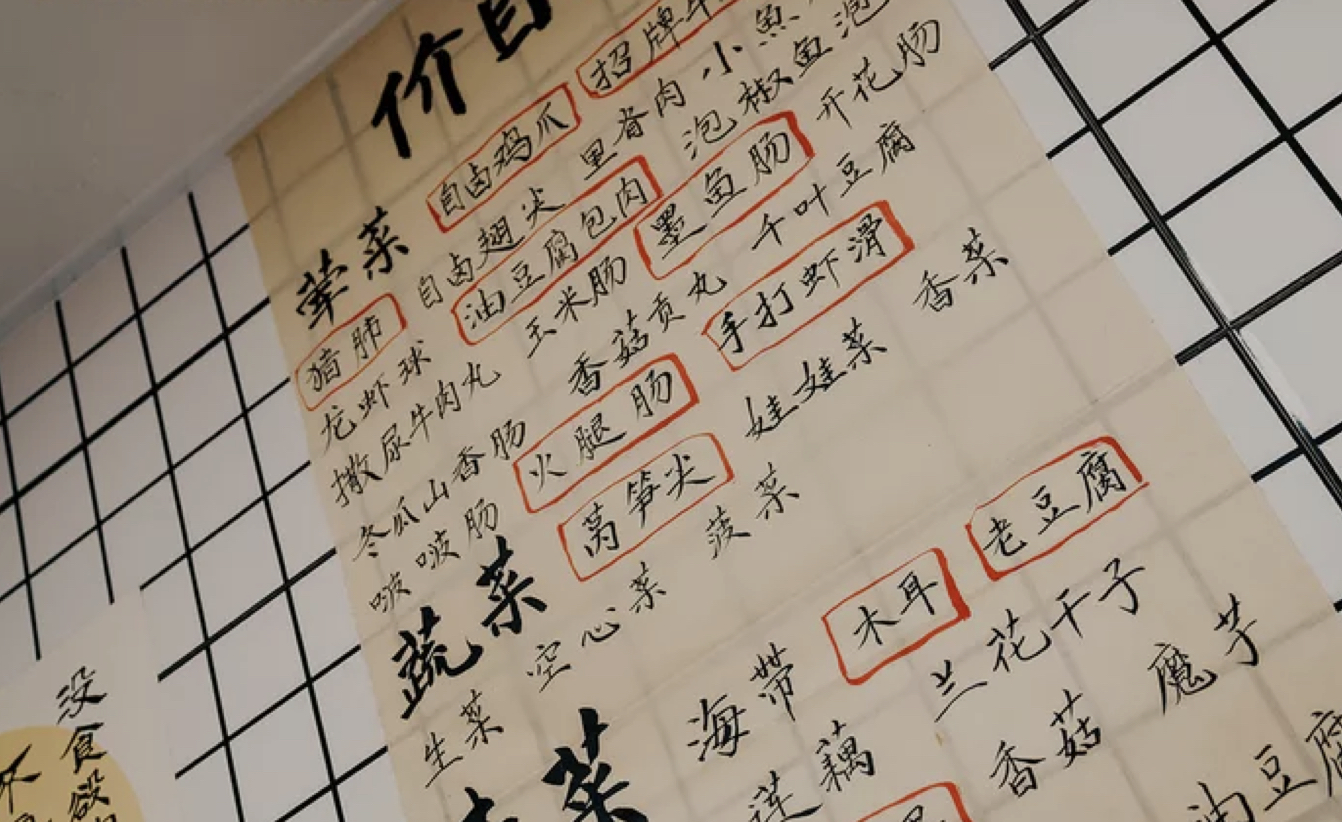 价目
荤菜 自卤鸡爪 招牌
猪肺 自卤翅尖 里脊肉 小魚
龙虾球 油豆腐包肉 泡椒鱼泡
撒尿牛肉丸 玉米肠 墨鱼肠 开花肠
冬瓜山香肠 香菇贡丸 千叶豆腐
啵啵肠 火腿肠 手打虾滑
蔬菜 莴笋尖 娃娃菜 香菜
生菜 空心菜 菠菜
菜 海带 木耳 老豆腐
莲藕 兰花干子
香菇 魔芋
油豆腐
没食欲
不